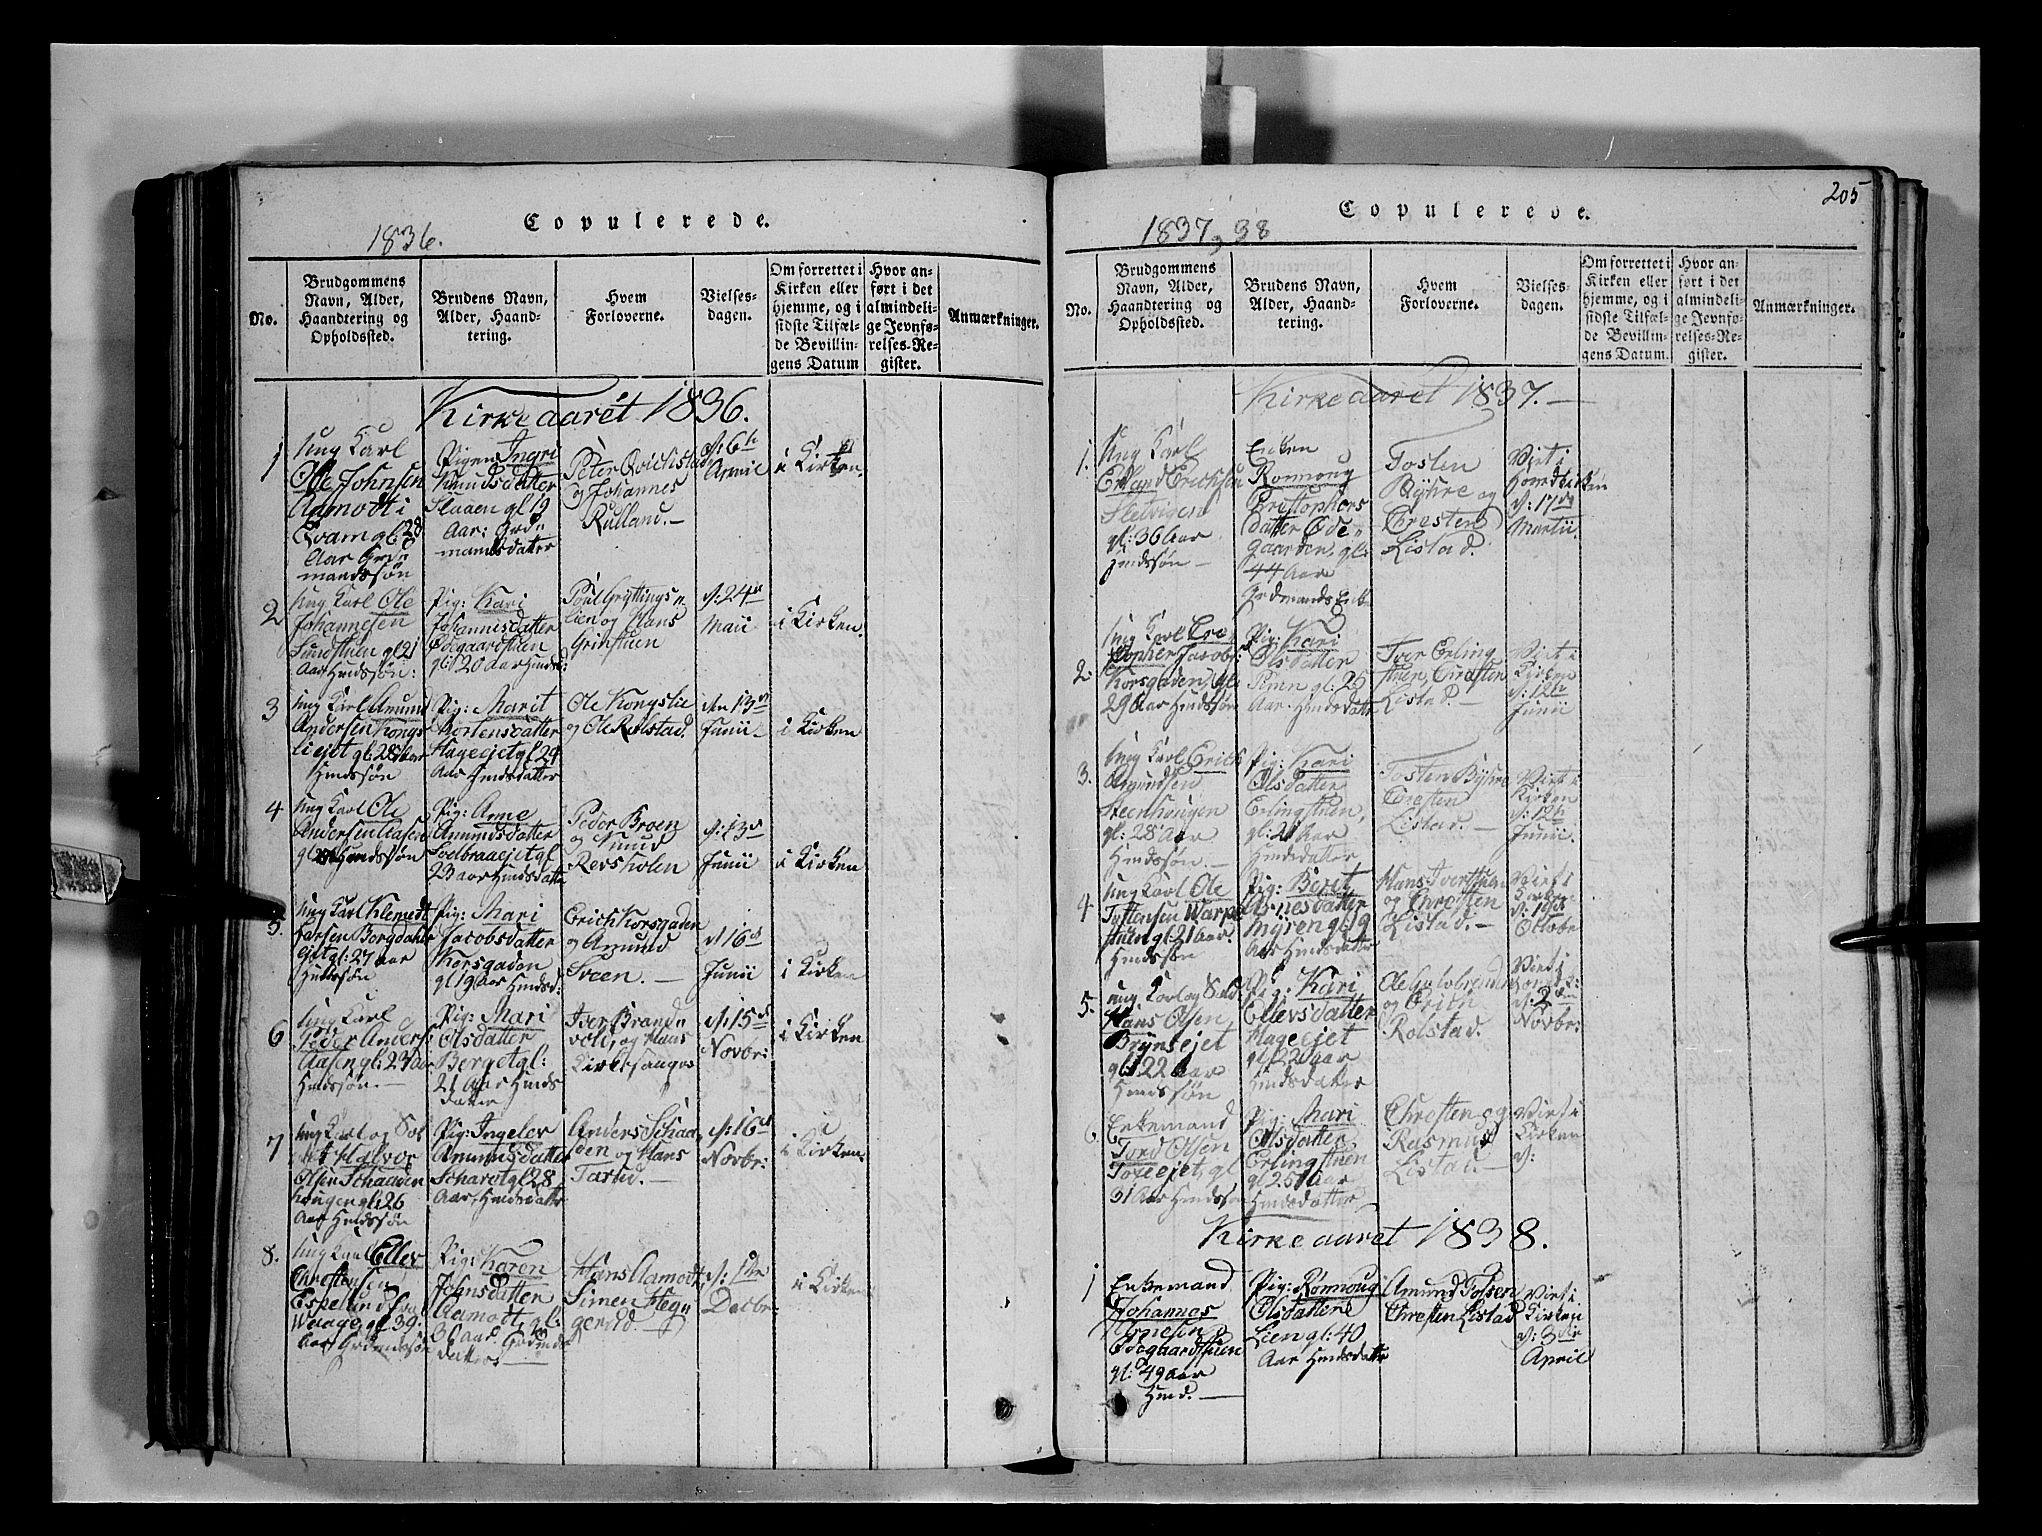 Copulerede.
1836.
No.
Brudgommens
Navn, Alder,
Haandtering og
Opholdssted.
Brudens Navn,
Alder, Haand-
tering.
Hvem
Forloverne.
Vielses-
dagen.
Om forrettet i
Kirken eller
hjemme, og i
sidste Tilfæl-
de Bevillin-
gens Datum
Hvor an-
ført i det
almindeli-
ge Jevnfø-
relses-Re-
gister.
Anmærkninger.
Kirkeaaret 1836.
1
Ung Karl
Ole Johnsen
Aamodt i
Qvam gl. 28
Aar Grd
mandssøn
Pigen Ingri
Knudsdatter
Sluaen gl 19
Aar: Grd
mandsdatter
Peter Qvilistad
og Johannes
Rulland.
d: 6te
April
i Kirken.
2
Ung Karl Ole
Johannesen
Sundstuen gl 21
Aar Hmdssøn:
Pig: Kari
Johannesdatter
Ødegaardstuen
gl: 20 Aar Hmdsd:
Poul Gryttings
lien og Hans
Grinstuen
d: 24de
Maii
i Kirken.
3
Ung Karl Amund
Andersen Kongs
liejet gl: 28 Aar
Hmdssøn
Pig: Marit
Mortensdatter
Hageejet gl 29
Aar Hmdsdatter
Ole Kongslie
og Ole Rolstad.
den 13de
Junii
i Kirken
4
Ung Karl Ole
Andersen Aasen
Hmdssøn
Pig: Anne
Amundsdatter
Solbraaejet gl
23 aar Hmdsdatter
Peder Broen
og Knud
Revsholen
d: 13de
Junii
i Kirken
5.
Ung Karl Klemedt
Larsen Borgdahls
ejet gl: 27 aar
Hmdssøn
Pig: Mari
Jacobsdatter
Korsgaden
gl 19 Aar Hmdsd.
Erich Korsgaden
og Amund
Sveen.
d 16de
Junii
i Kirken
6
Ung Karl
Peder Anders:
Aasen gl: 23 aar
Hmdssøn.
Pig: Mari
Olsdatter
Berget gl:
21 Aar Hmds
datter
Iver Brand
vold, og Hans
Kirkesanger
d: 15de
Novbr:
i Kirken
7
Ung Karl og Sol
dat Halvor
Olsen Schaaden
haugen gl: 26
Aar Hmdssøn
Pig: Ingeler
Amundsdatter
gl 28
Aar, Hmdsdatter
Anders Schaa
den og Hans
d: 16de
Novbr:
i Kirken.
8.
Ung Karl Ellev
Christensen
Espelund fra
Waage, gl. 39.
Aar Grdmdssøn
Pig: Karen
Johnsdatter
Aamodt, gl:
Aar. Grdmds
datter
Hans Aamodt,
Simen Hegn
gerud.
Decbr:
i Kirken
205
Copulerede.
1837, 38
No.
Brudgommens
Navn, Alder,
Haandtering og
Opholdssted.
Brudens Navn,
Alder, Haand-
tering.
Hvem
Forloverne.
Vielses-
dagen.
Om forrettet i
Kirken eller
hjemme, og i
sidste Tilfæl-
de Bevillin-
gens Datum.
Hvor an-
ført i det
almindeli-
ge Jevnfø-
relses-Re-
gister.
Anmærkninger.
Kirkeaaret 1837.
1.
Ung Karl
Erland Erichsen
gl: 36 Aar
Hmdssøn
Enken
Ronnoug
Christophers
datter Øde
gaarden, gl:
44 Aar
Grdmands Enke
Tosten
Byhre og
Chresten
Listad.
Viet i
Hovedkirken
d: 17de
Martii
2.
Ung Karl Cre
stopher Jacobs:
Korsgaden, gl:
29 Aar Hmdssøn
Pig: Kari
Olsdatter
gl: 25
Aar. Hmdsdatter
Iver Erling
stuen, Chresten
Listad.
Viet i
Kirken
d: 12te
Junii
3.
Ung Karl Erich
Amundsen
Steenhougen
gl: 28 Aar
Hmdssøn.
Pig: Kari
Olsdatter
Erlingstuen,
gl: 21 Aar
Hmdsdatter
Tosten Byhre
Chresten
Listad.
Viet i
Kirken
d: 12te
Junii
4
Ung Karl Ole
Tostensen Warpe
stuen gl: 21 Aar.
Hmdssøn
Pig: Berit
Arnesdatter
Myren gl 19
Aar Hmdsdatter
Hans Iverstuen
og Chresten
Listad.
Viet i
Octobr
5.
Ung Karl og Sold:
Hans Olsen
Brynsejet
gl: 22 Aar
Hmdssøn
Pig: Kari
Ellevsdatter
Hageejet
gl 22 aar
Hmdsdatter
og Erich
Rolstad.
Viet i
d: 2den
Novbr:
6
Enkemand
Tord Olsen
gl
31 Aar Hmdssøn
Pig: Mari
Olsdatter
Erlingstuen
gl 25 Aar
Hmdsdatter
Chresten og
Rasmus
Listad.
Viet i
Kirken
d:
Kirkeaaret 1838.
1
Enkemand
Johannes
Arnesen
Ødegaardstuen
gl: 49 Aar
Hmd.
Pig: Rønnoug
Olsdatter
Lien gl: 40
Aar Hmdsdatter
Amund Tofsen
Chresten Listad
Viet i
Kirken
d: 3die
April